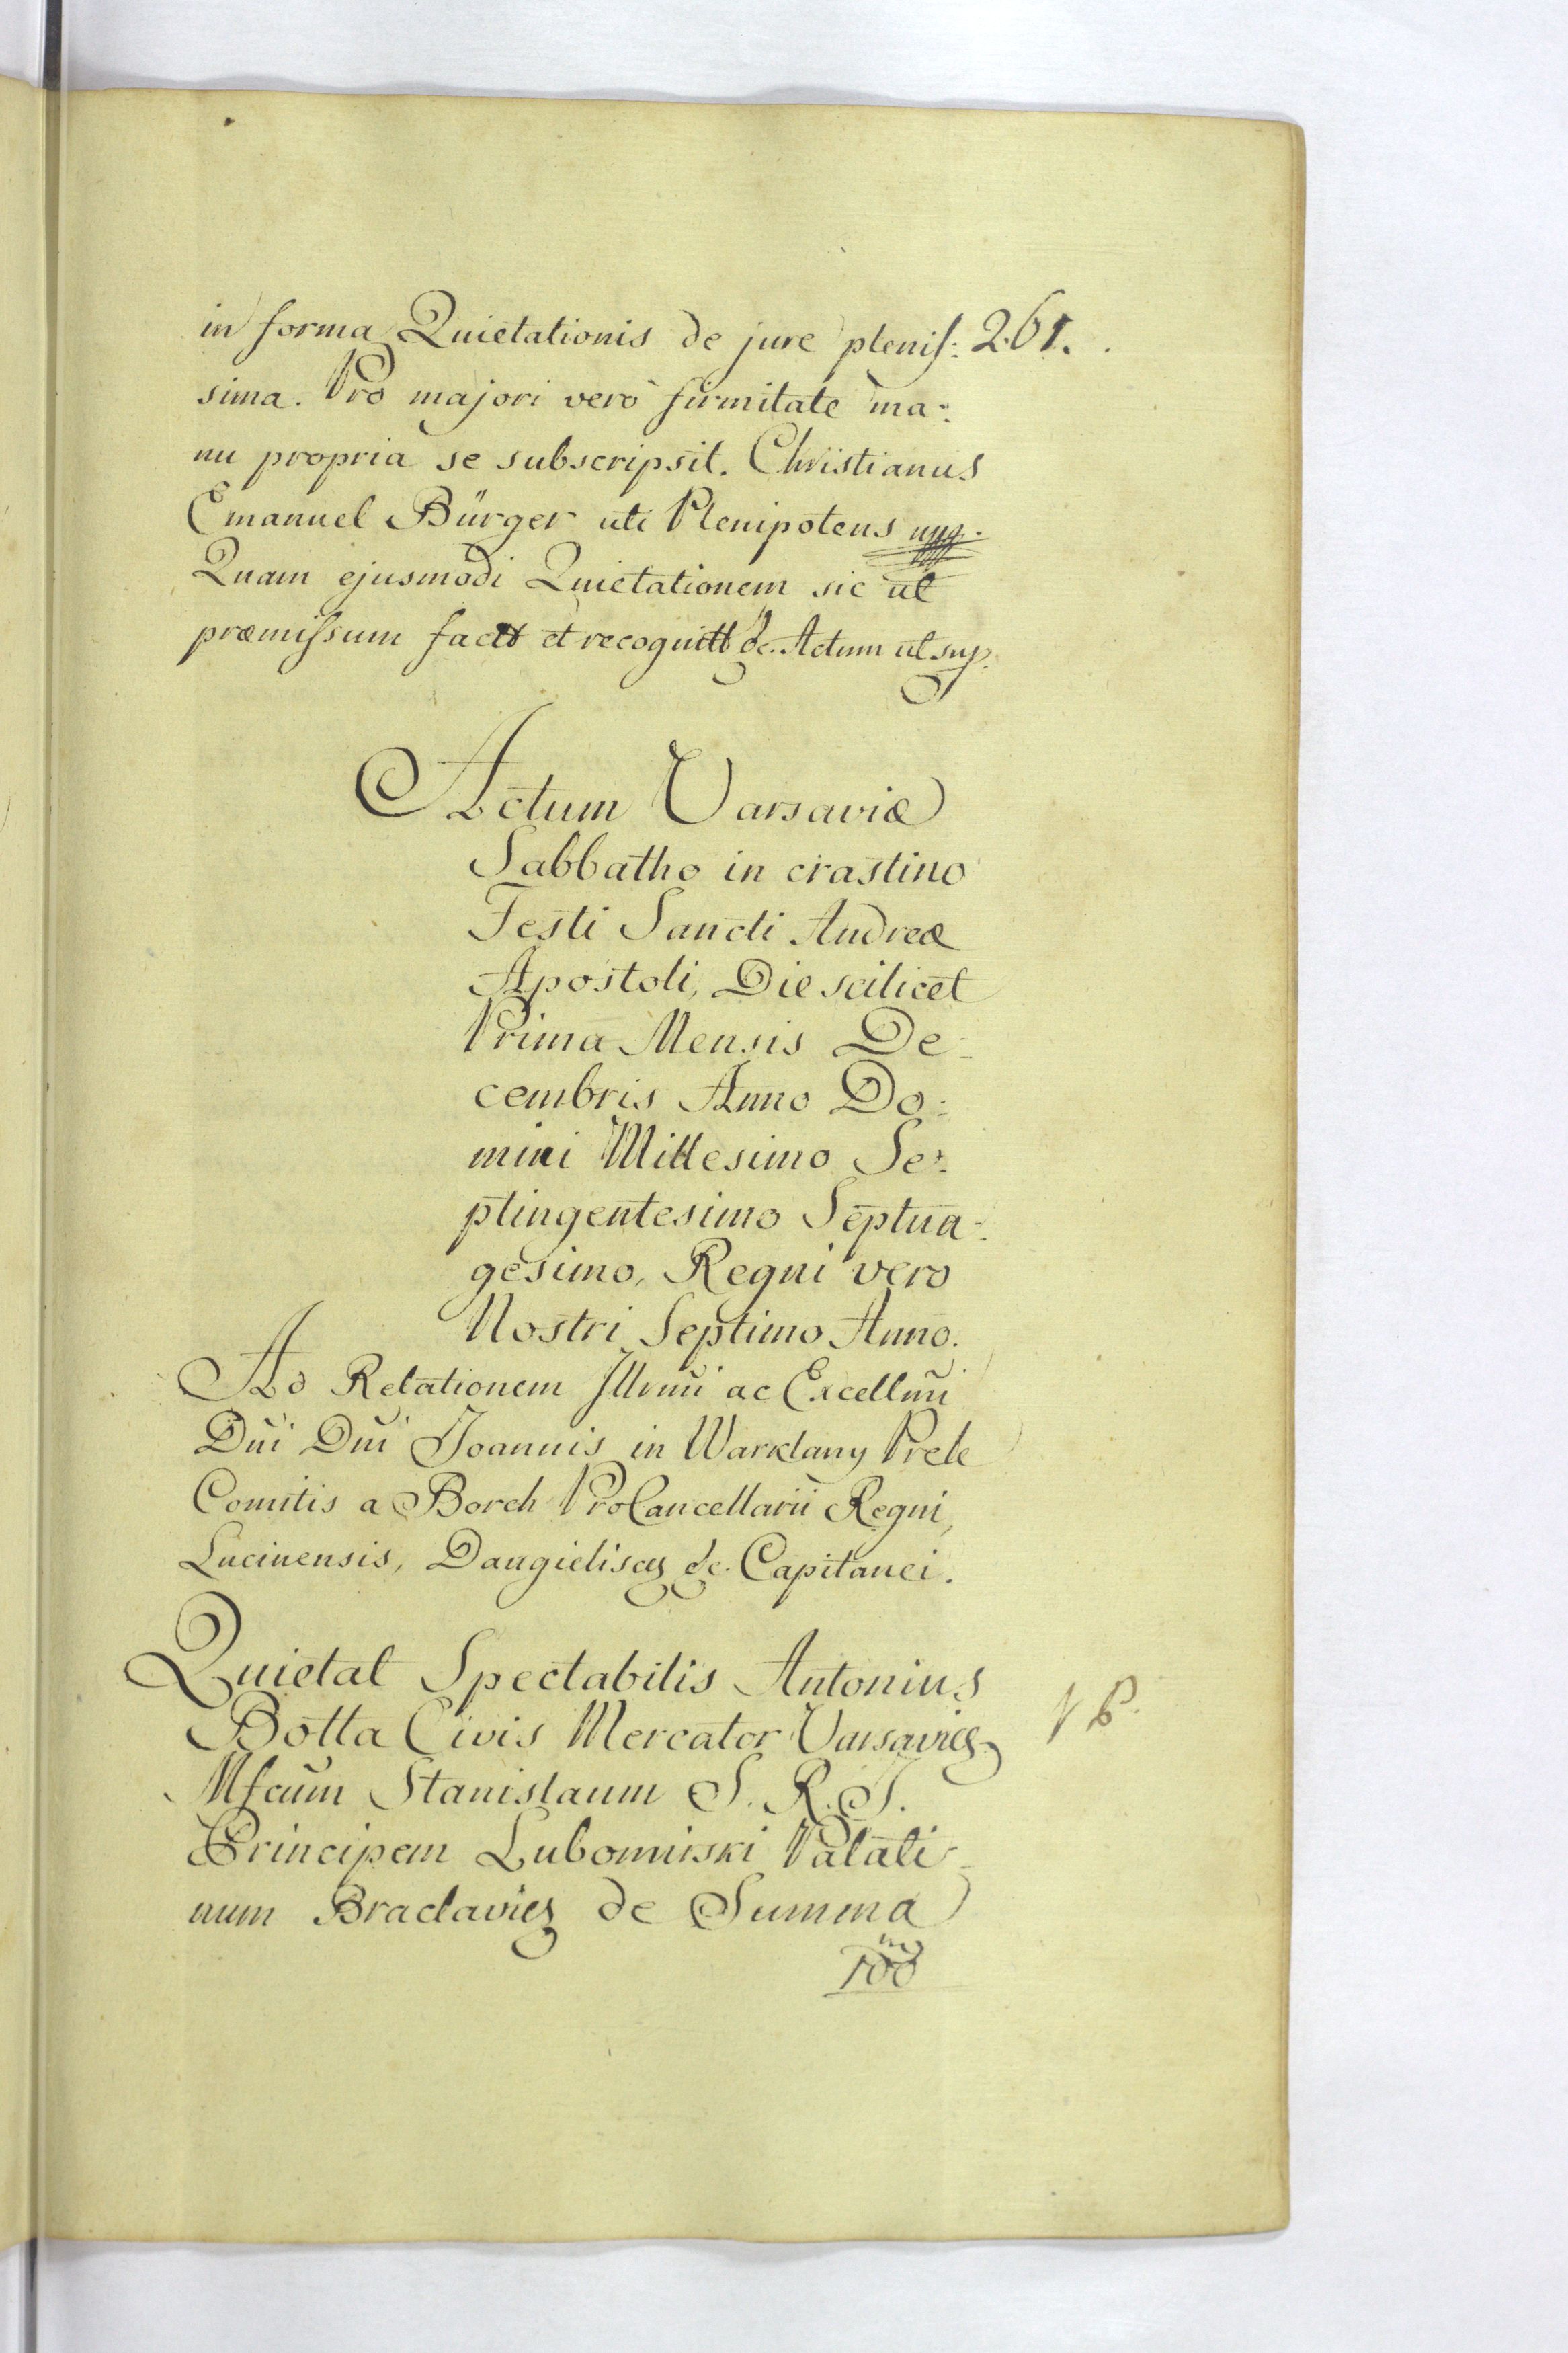 in forma Quietationis de jure plenis: 261.
sima. Pro majori verò firmitate ma:
nu propria se subscripsit. Christianus
Emanuel Bürger uti Plenipotens mpp.
Quam ejusmodi Quietationem sic ut
præmissum factt et recognitt &c. Actum ut sup.
Actum Varsaviæ
Sabbatho in crastino
Festi Sancti Andreæ
Apostoli, Die scilicet
Prima Mensis De-
cembris Anno Do:
mini Millesimo Se:
ptingentesimo Septua-
gesimo, Regni vero
Nostri Septimo Anno.
Ad Relationem Illrmi ac Excellmi
Dni Dni Joannis in Warklany Prele
Comitis a Borch ProCancellarii Regni,
Lucinensis, Daugielisceg &c. Capitanei.
Quietat Spectabilis Antonius
Botta Civis Mercator Varsavieg
Mfcum Stanislaum S. R. J.
Principem Lubomirski Palati-
num Braclavieg de Summa
100